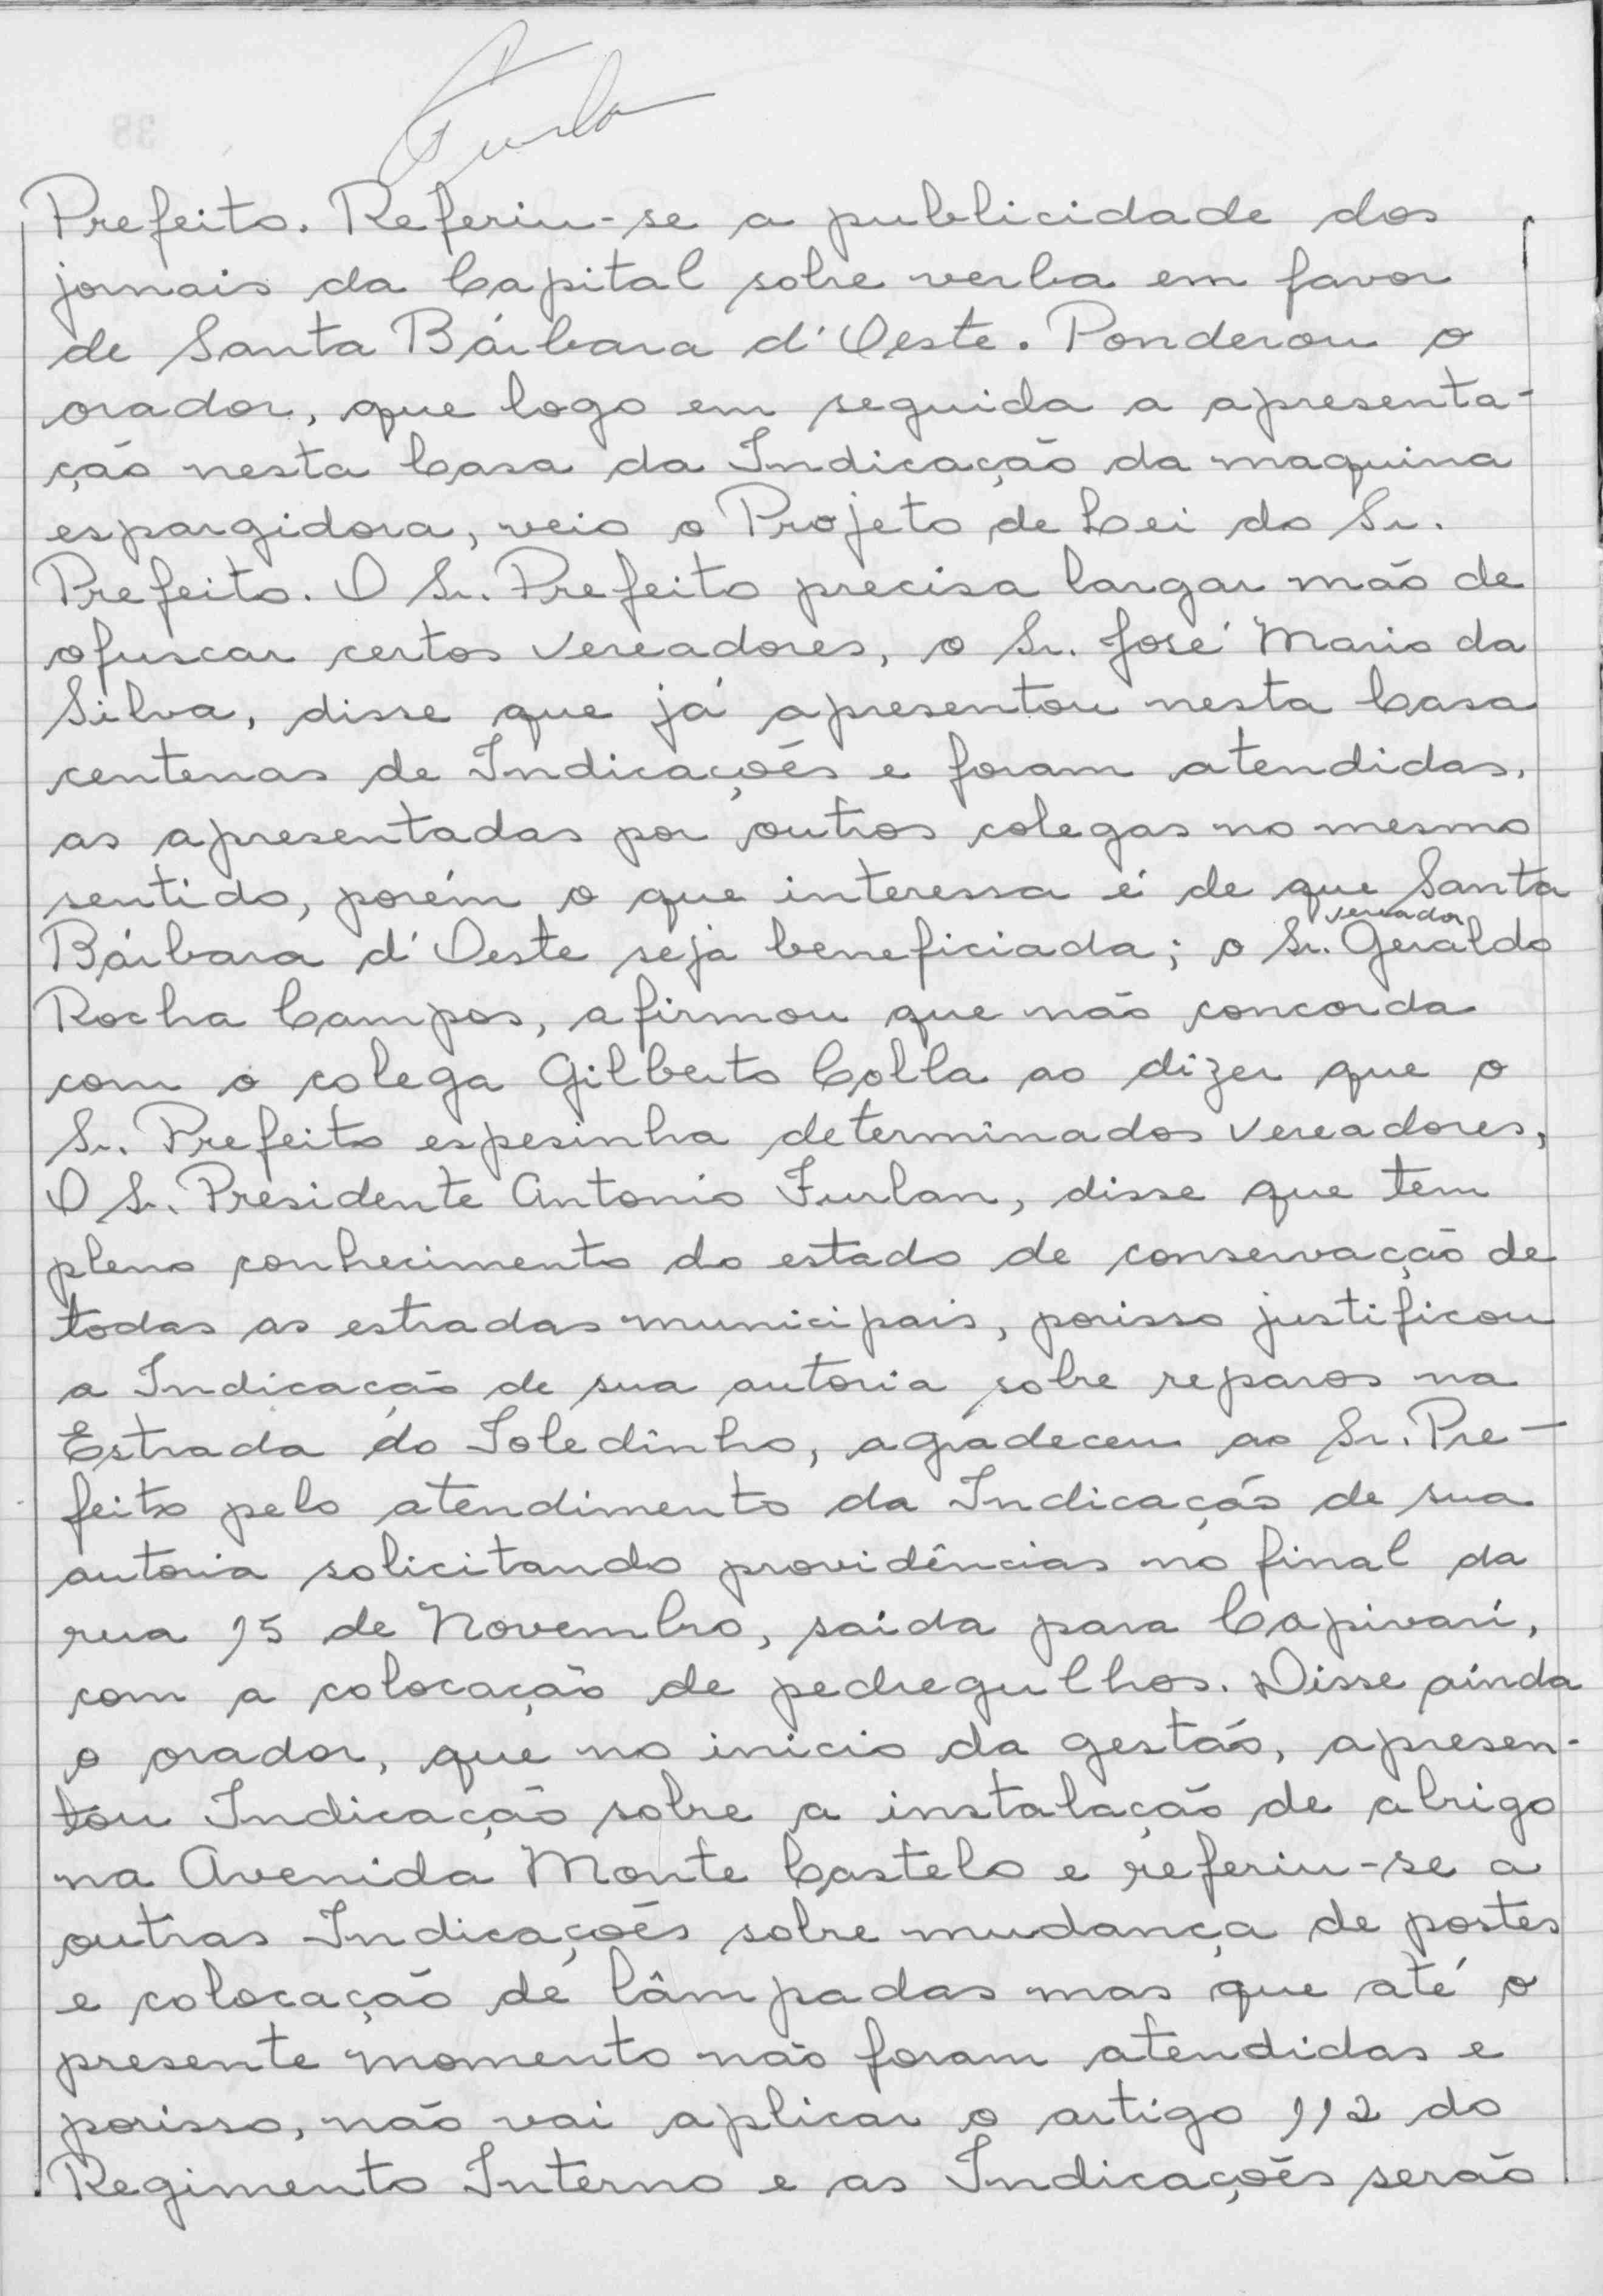 Prefeito. Referiu-se a publicidade dos
jornais da Capital sobre verba em favor
de Santa Bárbara d'Oeste. Ponderou o
orador, que logo em seguida a apresenta-
ção nesta Casa da Indicação da maquina
espargidora, veio o Projeto de Lei do Sr.
Prefeito. O Sr. Prefeito precisa largar mão de
ofuscar certos vereadores, o Sr. José Mario da
Silva, disse que já apresentou nesta Casa
centenas de Indicações e foram atendidas,
as apresentadas por outros colegas no mesmo
sentido, porém o que interessa é de que Santa
Bárbara d'Oeste seja beneficiada; o Sr. vereador Geraldo
Rocha Campos, afirmou que não concorda
com o colega Gilberto Colla ao dizer que o
Sr. Prefeito espesinha determinados vereadores,
O Sr. Presidente Antonio Furlan, disse que tem
pleno conhecimento do estado de conservação de
todas as estradas municipais, porisso justificou
a Indicação de sua autoria sobre reparos na
Estrada do Toledinho, agradeceu ao Sr. Pre-
feito pelo atendimento da Indicação de sua
autoria solicitando providências no final da
rua 15 de Novembro, saída para Capivari,
com a colocação de pedregulhos. Disse ainda
o orador, que no inicio da gestão, apresen-
tou Indicação sobre a instalação de abrigo
na Avenida Monte Castelo e referiu-se a
outras Indicações sobre mudança de postes
e colocação de lâmpadas mas que até o
presente momento não foram atendidas e
porisso, não vai aplicar o artigo 112 do
Regimento Interno e as Indicações serão